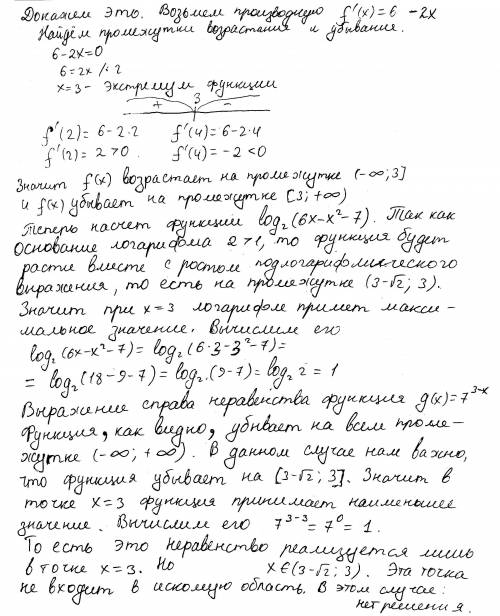 Докажем это. Возьмем производную f'(x)=6 -2x
Найдём промежутки возрастания и убывание.
6-2x=0
6=2x /:2
x=3- Экстремум функции
+ 3 -
f'(2)=6-2·2 f'(4)=6-2·4
f'(2)=2>0 f'(4)=-2<0
Значит f(x) возрастает на промежутке (-∞;3]
и f(x) убывает на промежутке [3;+∞)
Теперь насчет функции log₂(6x-x²-7). Так как
Основание логарифма 2>1, то функция будет
расти вместе с ростом подлогарифмического
выражения, то есть на промежутке (3-√2; 3).
Значит при x=3 логарифм примет макси-
мальное значение. Вычислим его
log₂(6x-x²-7)=log₂(6·3-3²-7)=
=log₂(18-9-7)=log₂(9-7)=log₂2=1
Выражение справа неравенства функция g(x)=7³⁻ˣ
Функция, как видно, убивает на всем проме-
жутке (-∞;+∞). В данном случае нам важно,
что функция убывает на [3-√2; 3]. Значит в
точке x=3 функция принимает наименьшее
значение. Вычислим его 7³⁻³=7⁰=1.
То есть это неравенство реализуется лишь
в точке x=3. Но x∈(3-√2; 3). Эта точка
не входит в искомую область. В этом случае:
нет решения.